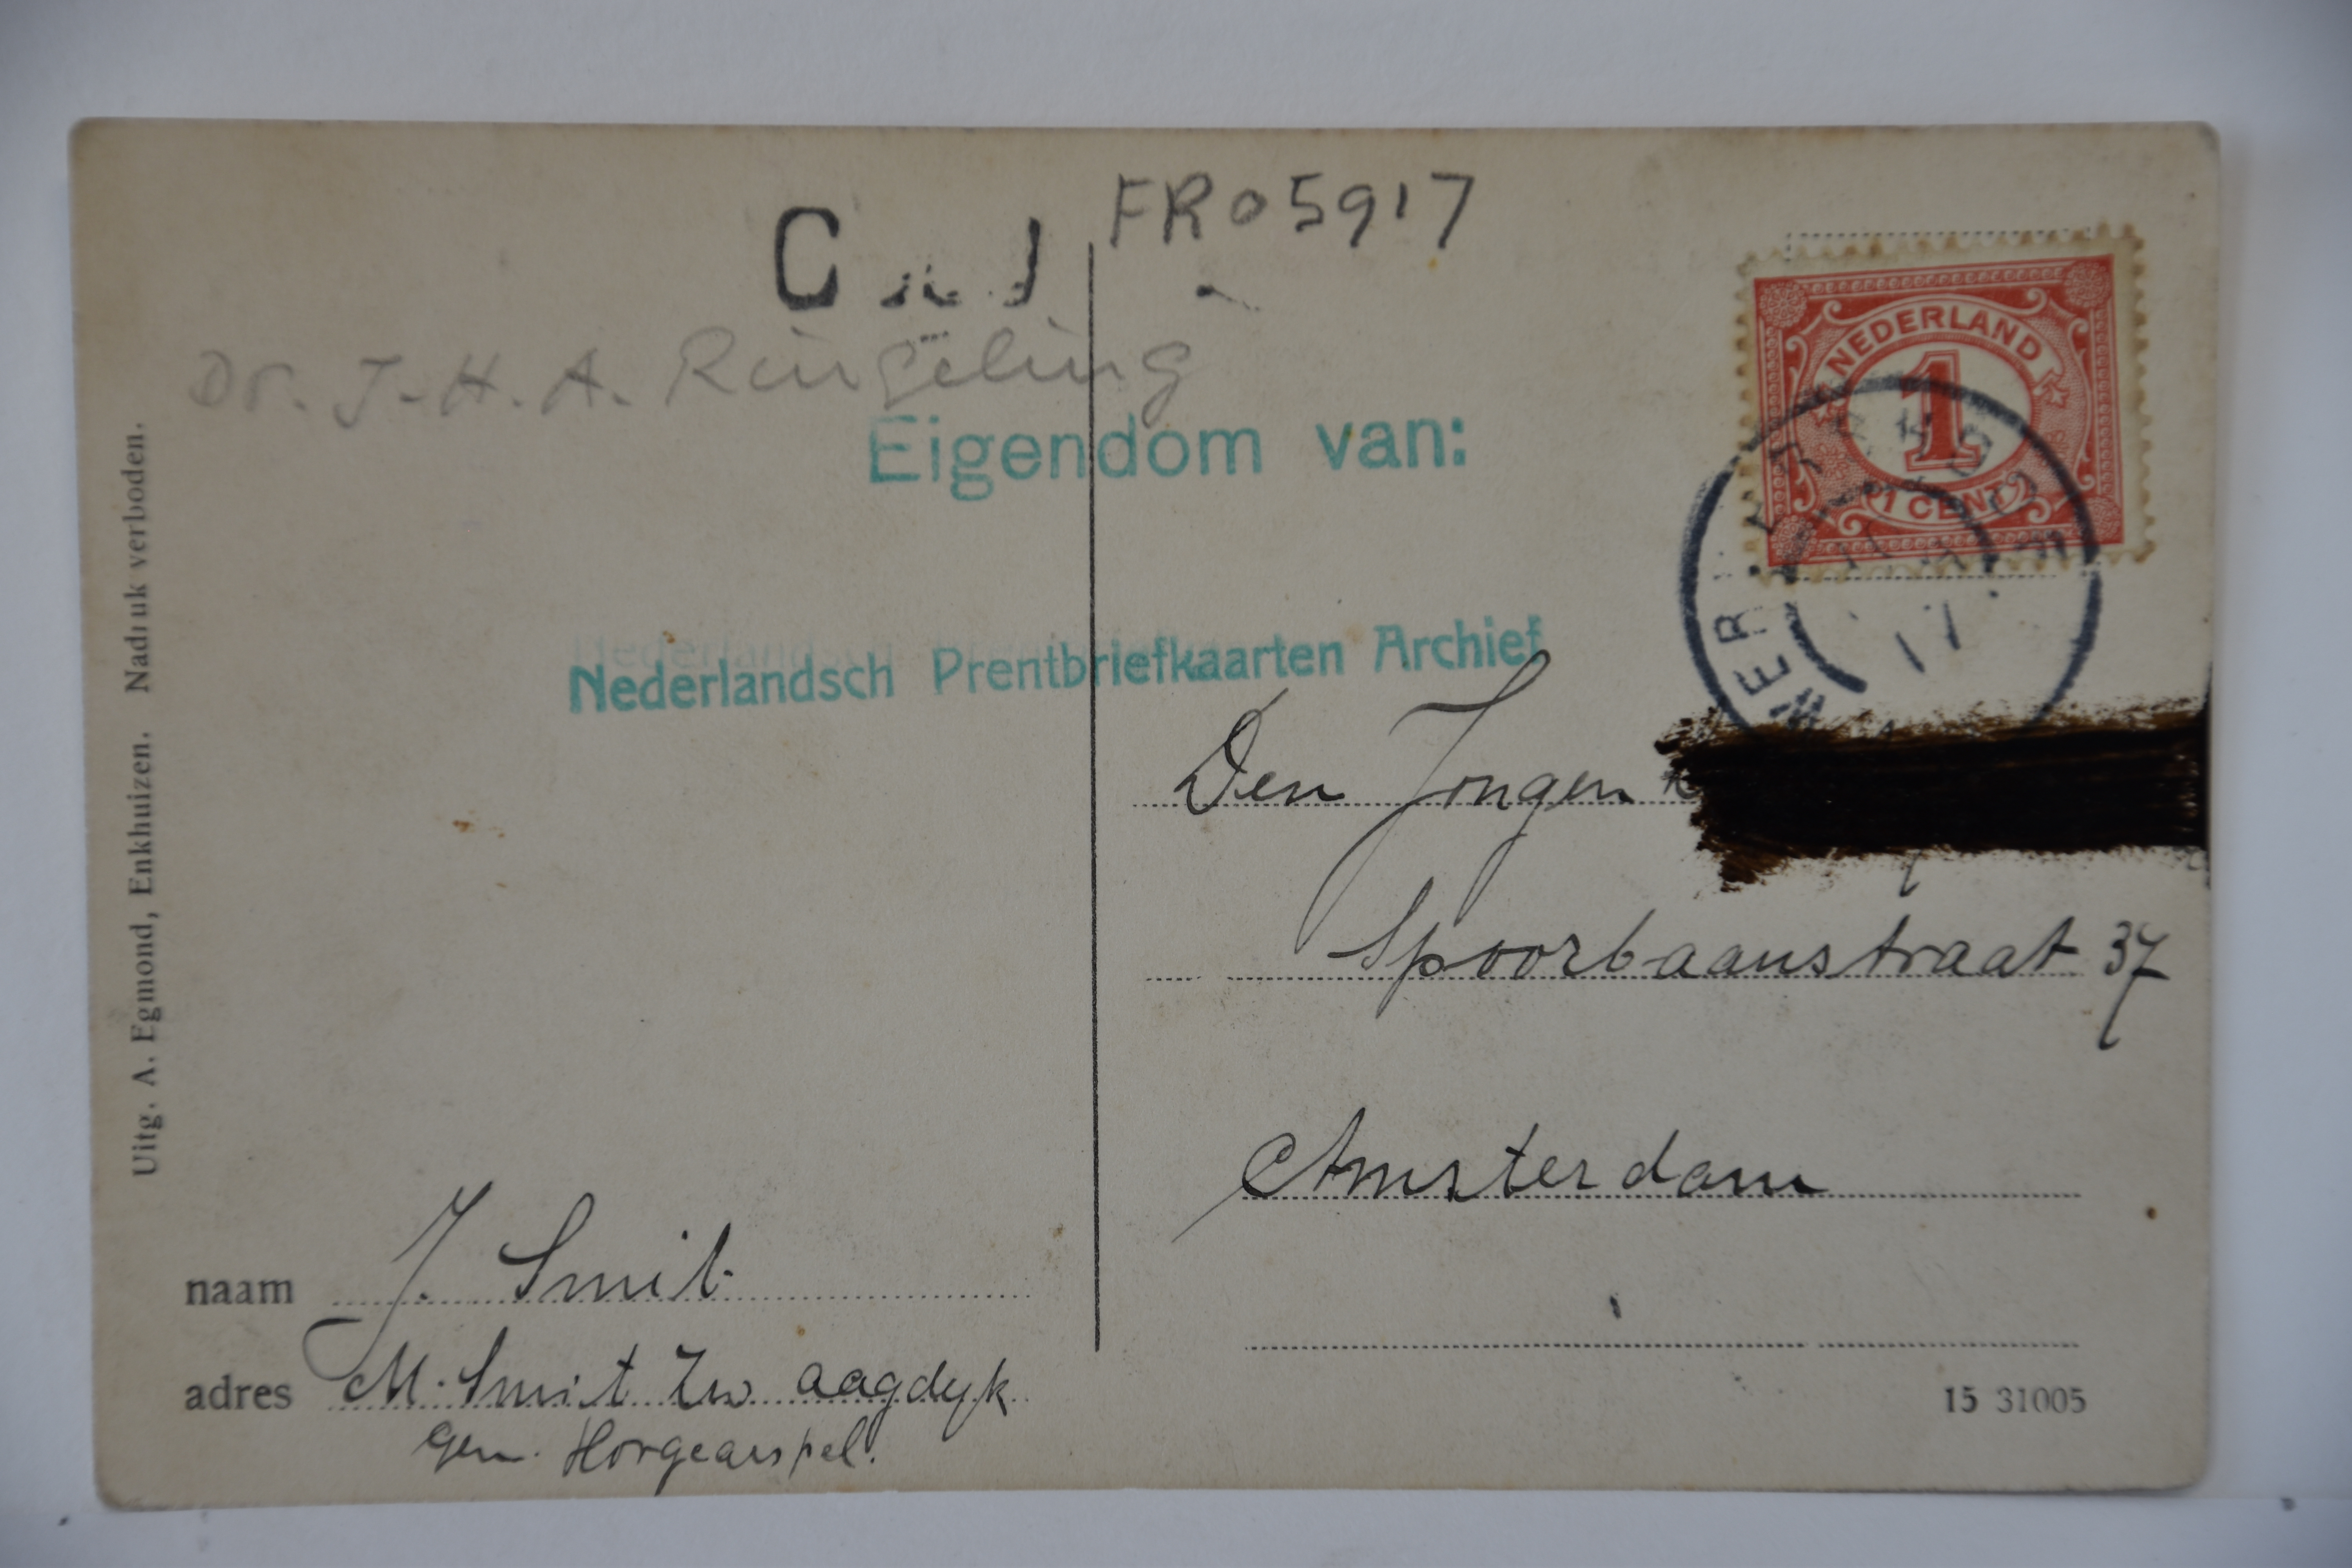 FR05917
Dr. J. H. A. Ringeling
Eigendom van:
Nederlandsch Prentbriefkaarten Archief
NEDERLAND
1
1 CENT
17
Den Jongen
Spoorbaanstraat 37
Amsterdam
Uitg. A. Egmond, Enkhuizen. Nadruk verboden.
naam J. Smit
adres M. Smit Zwaagdyk
gem.
15 31005